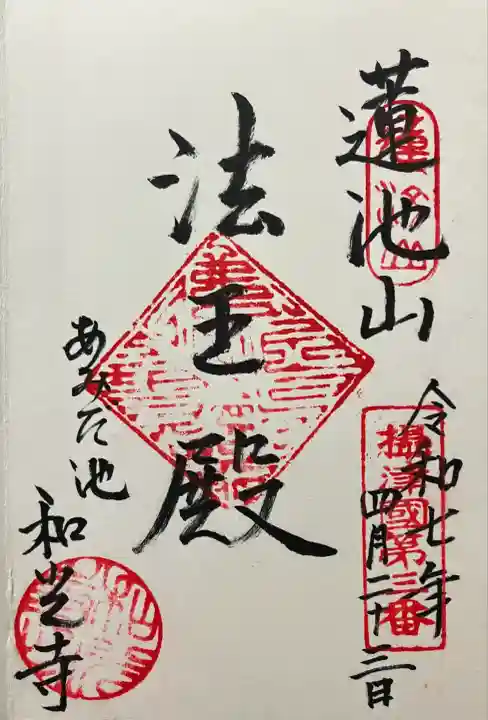 蓮池山
令和七年
四月二十三日
摂津國第三番
法王殿
あみだ池
和光寺